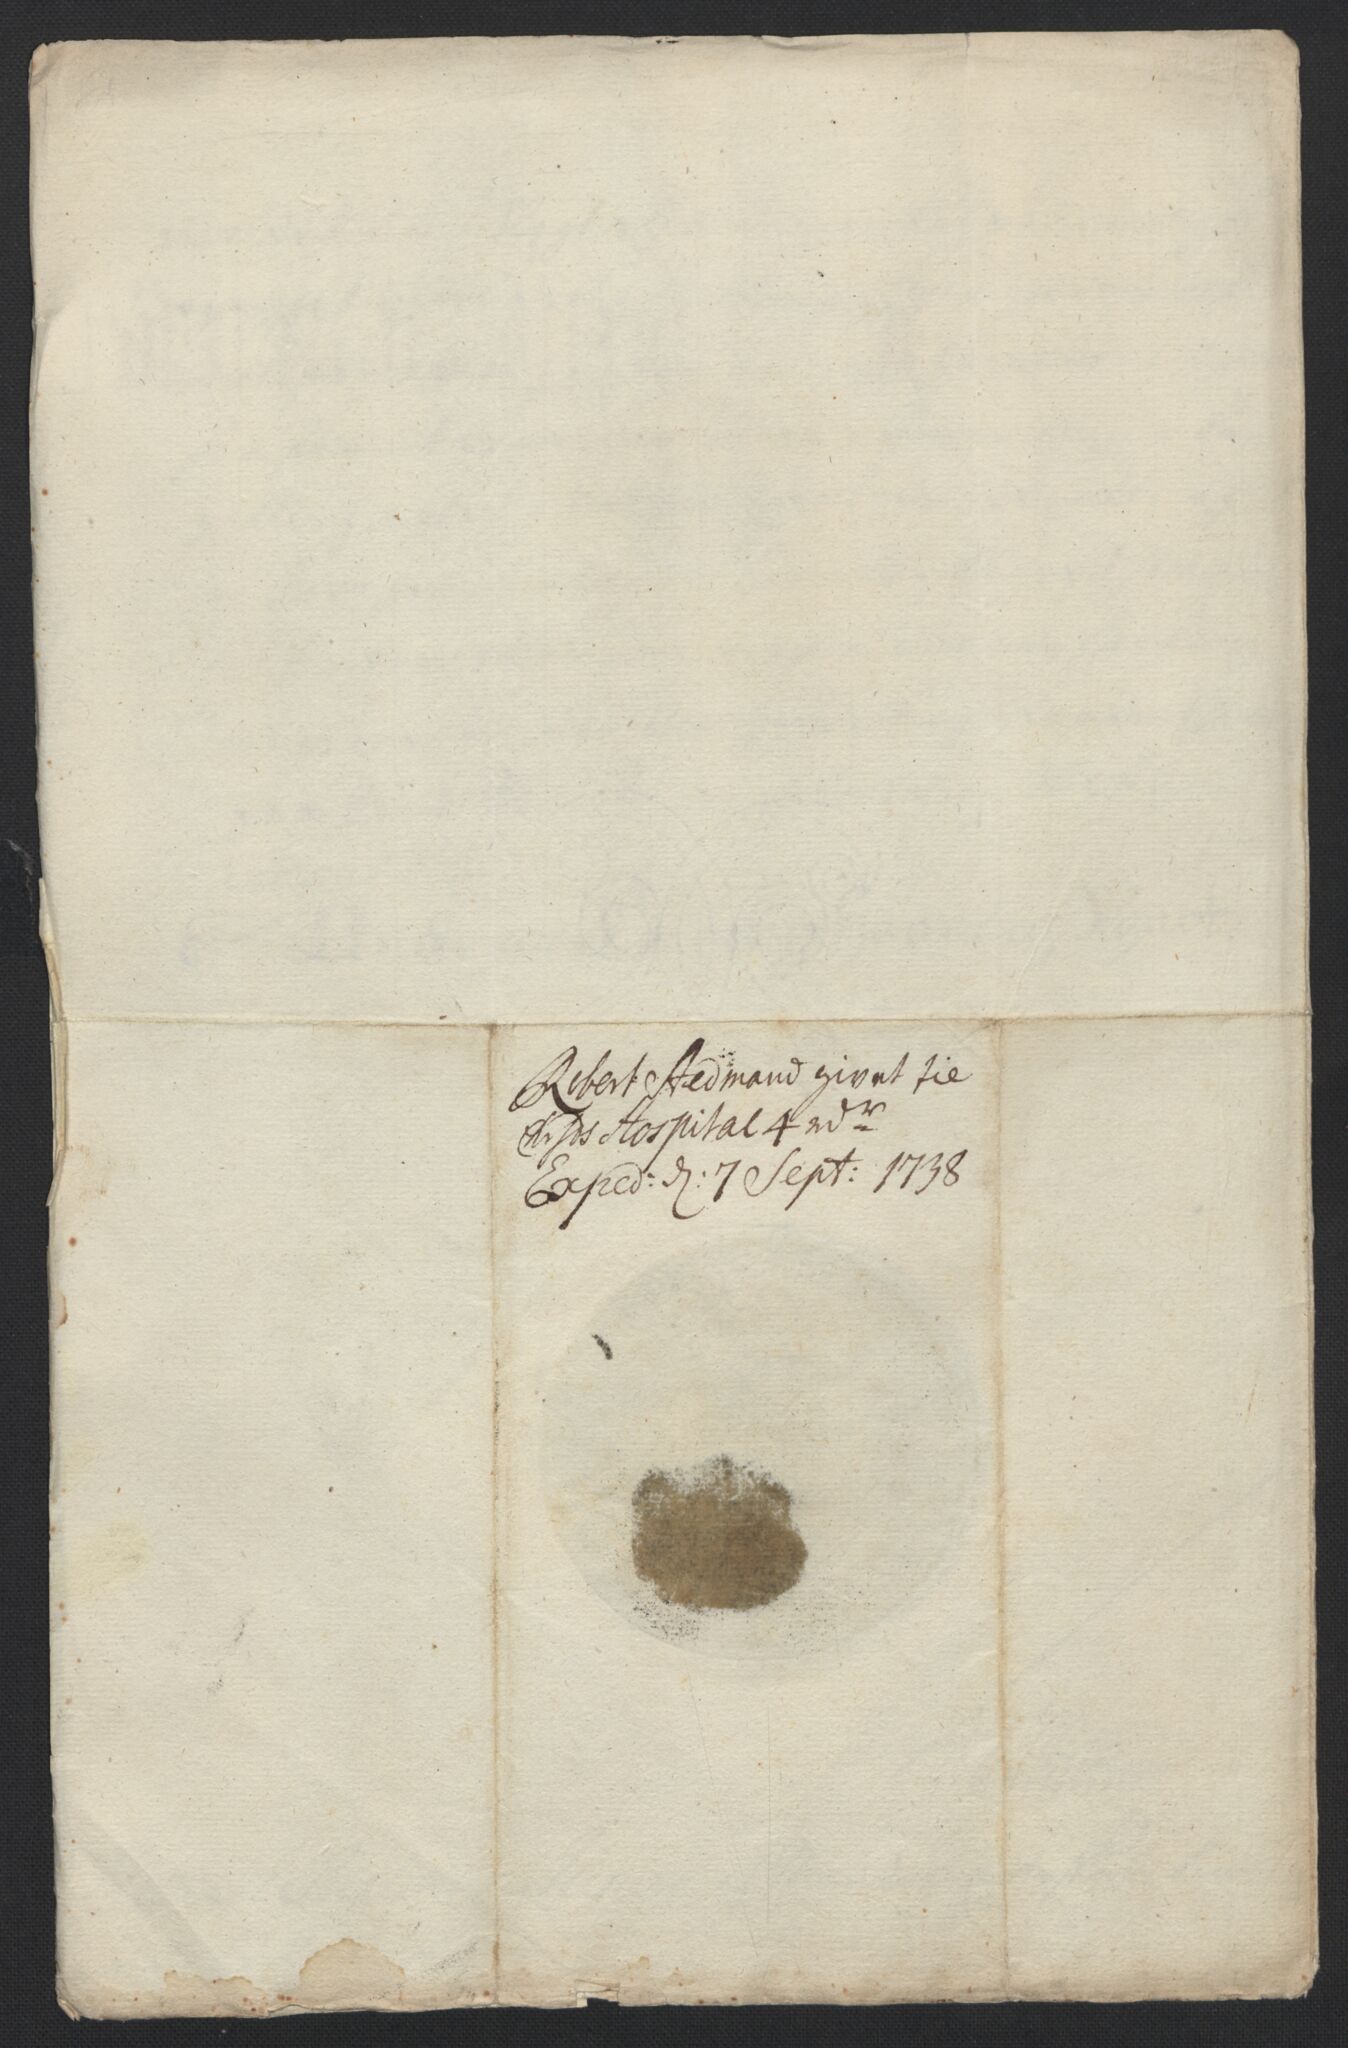 Robert Stedmand givet til
Hospital 4 rdr
Exped: d: 7 Sept: 1738